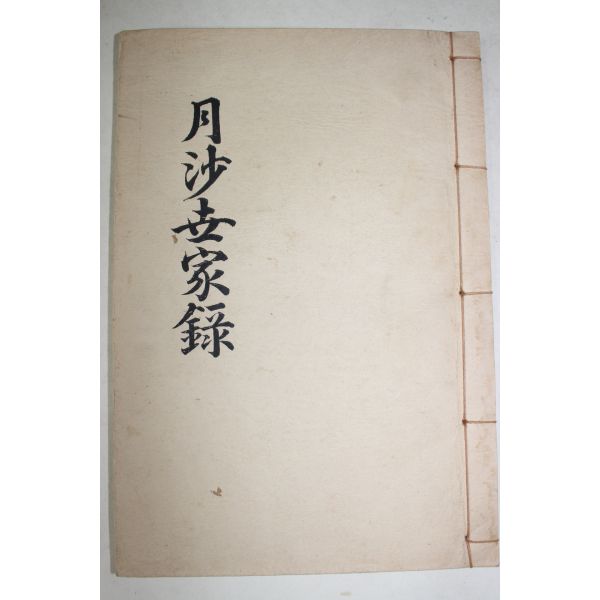 月沙世家錄